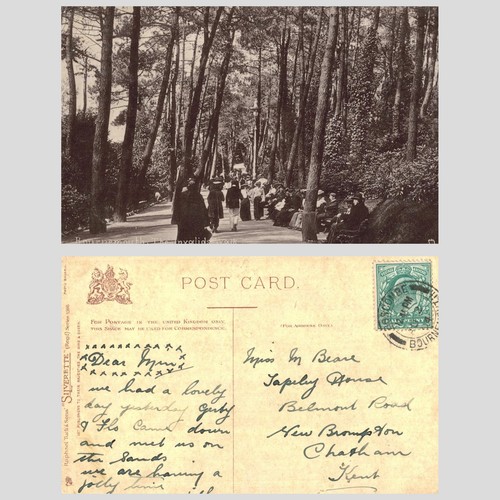 Bournemouth, the Invalids Walk
POST CARD.
FOR POSTAGE IN THE UNITED KINGDOM ONLY,
THIS SPACE MAY BE USED FOR CORRESPONDENCE.
(FOR ADDRESS ONLY.)
"SILVERETTE"
BOURNE
Dear Min
we had a lovely
day yesterday
& Flo came down
and met us on
the Sands
we are having a
jolly time
Miss M Beare
Tapely House
Belmont Road
New Brompton
Chatham
Kent